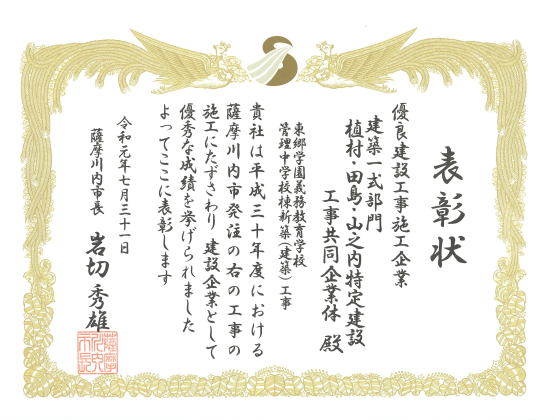 表彰状
優良建設工事施工企業
建築一式部門
植村・田島・山之内特定建設
工事共同企業体 殿
東郷学園義務教育学校
管理中学校棟新築(建築)工事
貴社は平成三十年度における
薩摩川内市発注の右の工事の
施工にたずさわり 建設企業として
優秀な成績を挙げられました
よってここに表彰します
令和元年七月三十一日
薩摩川内市長 岩切秀雄